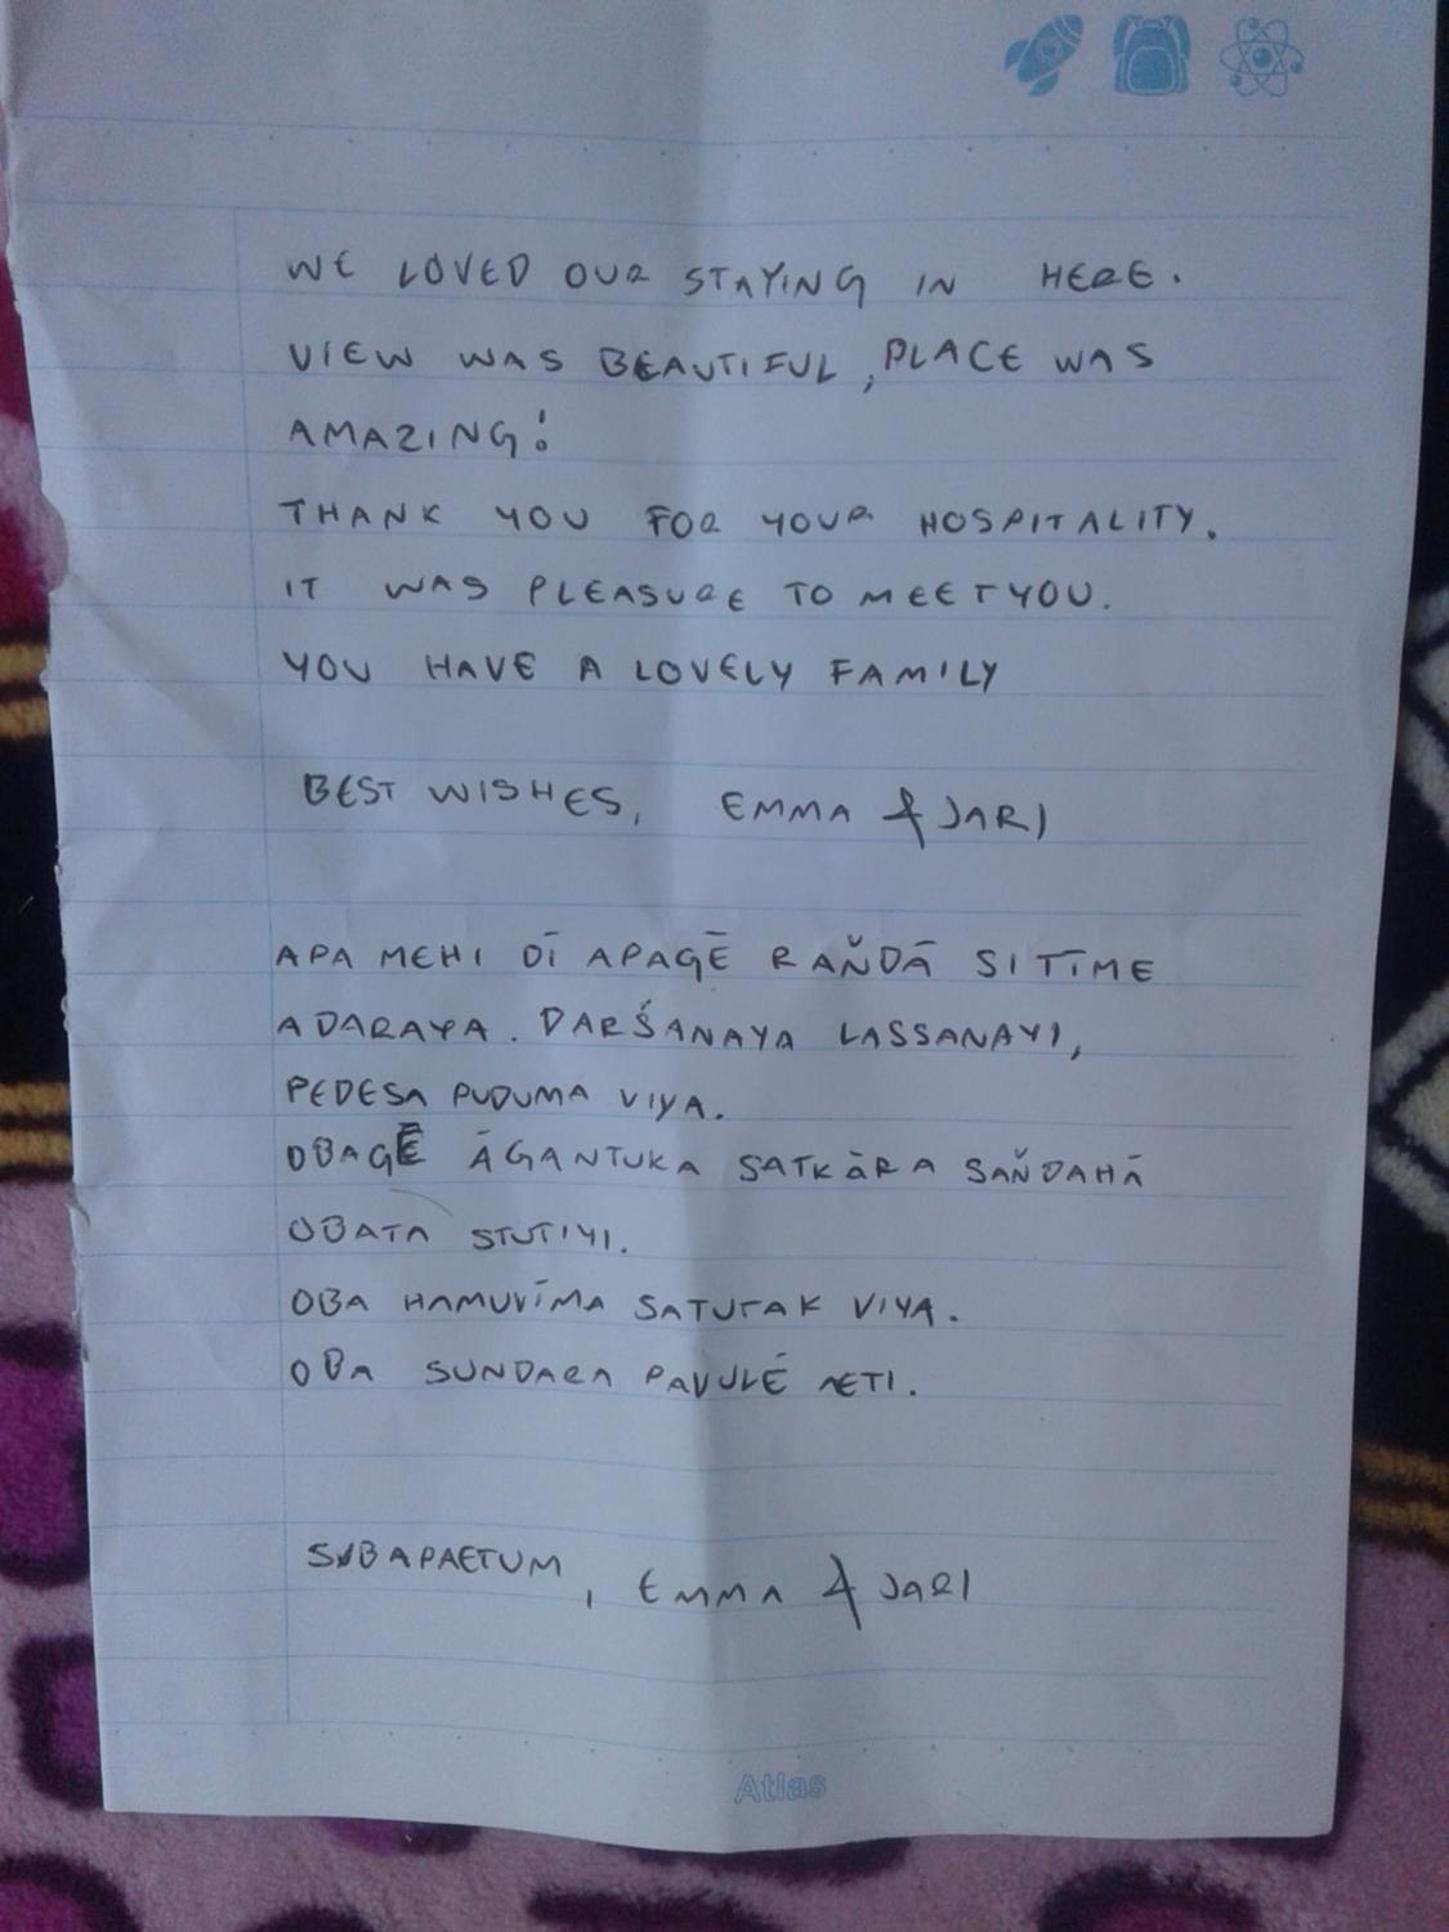 WE LOVED OUR STAYING IN HERE.
VIEW WAS BEAUTIFUL, PLACE WAS
AMAZING!
THANK YOU FOR YOUR HOSPITALITY.
IT WAS PLEASURE TO MEET YOU.
YOU HAVE A LOVELY FAMILY
BEST WISHES, EMMA & JARI
APA MEHI DĪ APAGĒ RAN̆DĀ SITĪME
ADARAYA. DARŚANAYA LASSANAYI,
PEDESA PUDUMA VIYA.
OBAGĒ ĀGANTUKA SATKĀRA SAN̆DAHĀ
OBATA STUTIYI.
OBA HAMUVĪMA SATUTAK VIYA.
OBA SUNDARA PAVULĒ AETI.
SUBAPAETUM, EMMA & JARI
Atlas